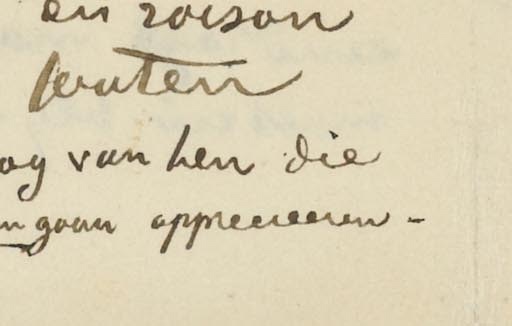 en raison
fouten
oog van hen die
n gaan apprecieeren -